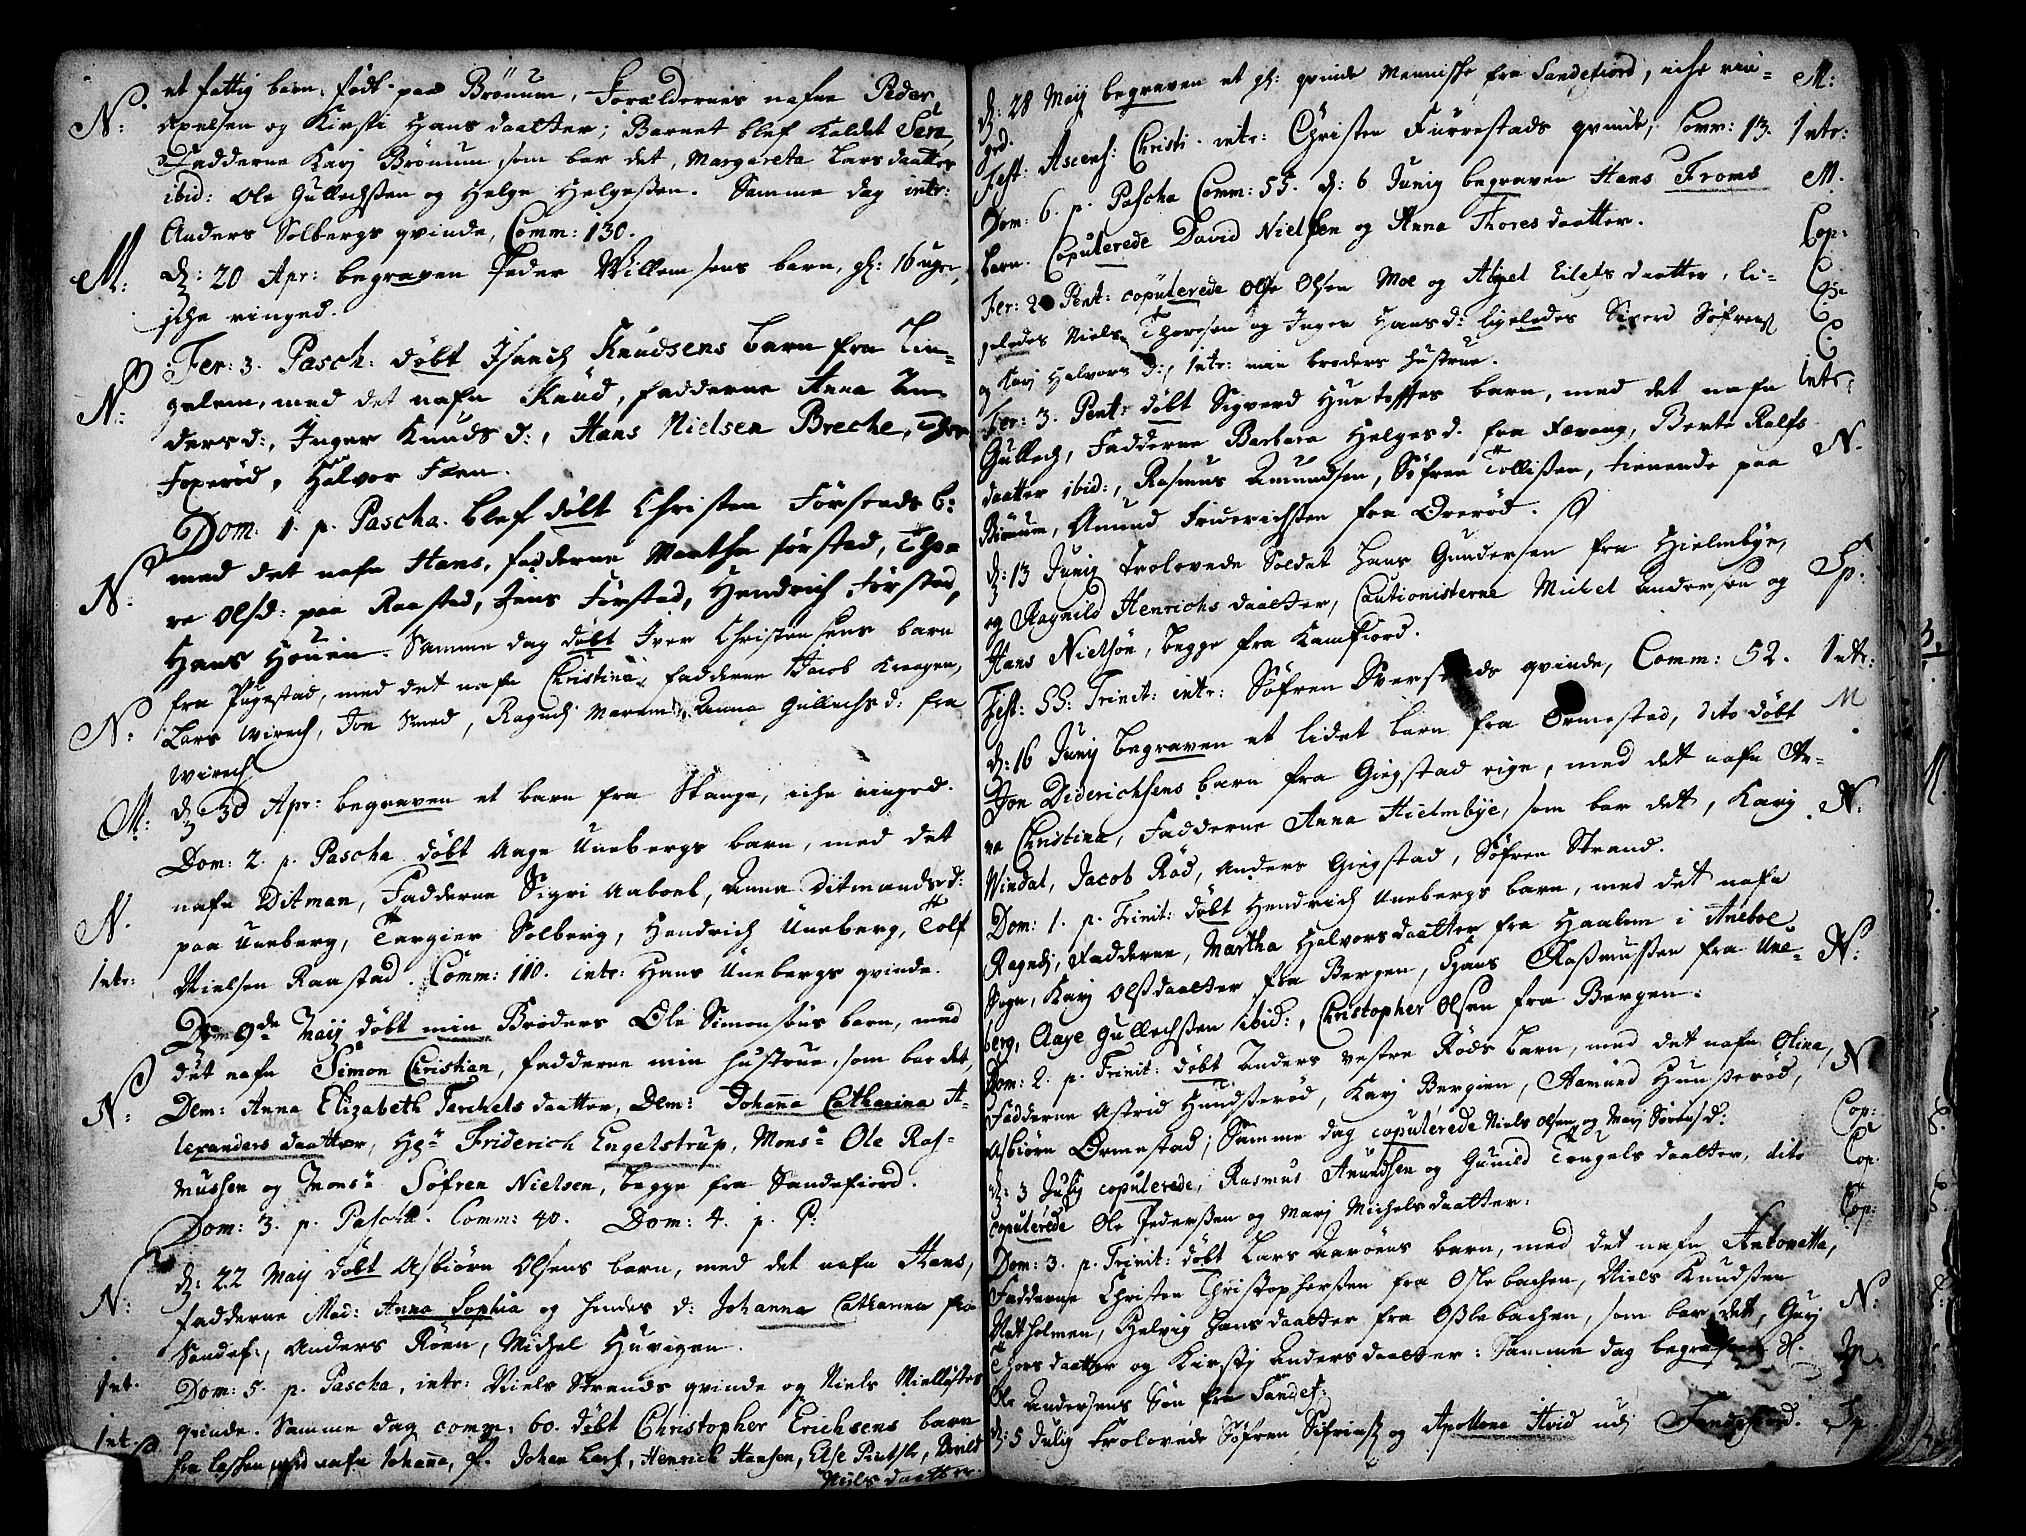 et fattig barn, født paa Brönum, Forældernis nafne Peder
N: Apelsen og Kirsti Hans daatter; Barnet blef kaldet Sara,
Fadderne Karj Brönum som bar det, Margareta Lars daatter
ibid: Ole Gullechsen og Helge Helgessen. Samme dag intr:
Anders Solbergs qvinde, Comm: 130.
M: d: 20 Apr: begraven Peder Willemsens barn, gl: 16 uger,
iche ringed.
Fer: 3. Pasch: döbt Isaach Knudsens barn fra Lin-
N: gelem, med det nafn Knud, fadderne Anna An-
dersd:, Inger Knuds d:, Hans Nielsen Breche, Thor
Foxeröd, Halvor Fæen.
Dom: 1. p. Pascha. blef döbt Christen Förstads b:
N: med det nafn Hans, fadderne Martha förstad, Tho-
re Olsd: paa Raastad, Jens Förstad, Hendrich Förstad,
Hans Houen. Samme dag döbt Iver Christensens barn
fra Pugestad, med det nafn Christina, fadderne Jacob Kraagen,
N: Lars Wirech, Jon Smed, Ragndj Maren d:, Anna Gullichs d: fra
Wirech
M: d: 30 Apr: begraven et barn fra Skange, iche ringed.
Dom: 2. p. Pascha döbt Aage Unebergs barn, med det
N. nafn Ditman, Fadderne Sigri Aaboel, Anna Ditmandsd:
paa Uneberg, Targier Solberg, Hendrich Uneberg, Tolf
Intr: Nielsen Raastad. Comm: 110. intr: Hans Unebergs qvinde.
Dend 9de Maij döbt min Broders Ole Simonsöns barn, med
det nafn Simon Christian, fadderne min hustrue, som bar det,
N: Dem: Anna Elizabeth Terchels daatter, Dem: Johanna Catharina A-
lexanders daatter, Hr Friderich Engelstrup, Monsr Ole Ras-
mussen og Monsr Söfren Nielsen, begge fra Sandefiord.
Dom: 3. p. Pascha. Comm: 40. Dom: 4. p. P:
d: 22 Maij döbt Asbiörn Olsens barn, med det nafn Hans,
N: fadderne Mad: Anna Sophia og hendes d: Johanna Catharina fra
Sandef:, Anders Röen, Michel Huvigen.
Int. Dom: 5. p. Pascha, intr: Niels Strands qvinde og Niels
Int. qvinde. Samme dag comm: 60. döbt Christopher Erichsens barn
fra med nafn Johanna, f. Johan Lars, Henrich Hansen, Else
Niels daatter.
d: 28 Maij begraven et gl: qvinde Mennishe fra Sandefiord, iche rin- M:
ged.
Fest: Ascens: Christi. intr: Christen Furrestads qvinde, Comm: 13. Intr:
Dom: 6. p. Pascha Comm: 55. d: 6 Junij begraven Hans Froms M.
barn. Copulerede David Nielsen og Anna Thores daatter. Cop:
Fer: 2 Pent: copulerede Olfe Olsen Moe og Abel Eilefs daatter, li- C:
geledes Niels Thoresen og Inger Hansd: ligeledes Siverd Söfrens C:
og Karj Halvors d:, Intr: min broders hustrue. C:
Fer: 3. Pent: döbt Sigverd barn, med det nafn Intr:
Gullech, Fadderne Barbara Helgesd. fra Fævang, Berte Ralfs
daatter ibid:, Rasmus Amundsen, Söfren Tollissen, tienende paa N.
Brönum, Amund Friderichsen fra Örerød.
d: 13 Junij trolovede Soldat Hans Gundersen fra Hielmbye, Sp:
og Ragnild Henrichs daatter, Cautionisterne Michel Andersen og
Hans Nielsön, begge fra Kamfiord.
Fest: SS: Trinit: intr: Söfren qvinde, Comm: 52. Intr:
d: 16 Junij begraven et lidet barn fra Ormestad, dito döbt M
Jon Diderichsens barn fra Giegstad eige, med det nafn A-
ne Christina, Fadderne Anna Hielmbye, som bar det, Karj N:
Windal, Jacob Röd, Anders Giegstad, Söfren Strand.
Dom: 1. p. Trinit: döbt Hendrich Unebergs barn, med det nafn
Ragndj, Fadderne, Martha Halvorsdaatter fra Haalem i Aneboe N:
Sogn, Karj Olsdaatter fra Bergen, Hans Rassmussen fra Une-
berg, Aage Gullechssen ibid:, Christopher Olsen fra Bergen.
Dom: 2. p. Trinit: döbt Anders vestre Röds barn, med det nafn Olina, N
Fadderne Astrid Hundsteröd, Karj Bergen, Aamund Hunsteröd,
Asbiörn Ormestad; Samme dag copulerede Niels Olsen og Marj Sörens d: Cop:
d: 3 Julij copulerede, Rasmus Anundsen og Gunild Tengels daatter, dito Cop:
copulerede Ole Pederssen og Marj Michelsdaatter: Cop:
Dom: 3. p. Trinit: döbt Lars Aaröens barn, med det nafn Antonetta,
Fadderne Christen Christophersen fra Oslebachen, Niels Knudsen N:
Natholmen, Helvig Hansdaatter fra Osslebachen, som bar det, Gurj
Thorsdaatter og Kirstj Andersdaatter: Samme dag begraven
Ole Andersens Sön fra Sandef:
d: 5 Julij trolovede Söfren og Apollona Hvid udj Sandefiord. Sp